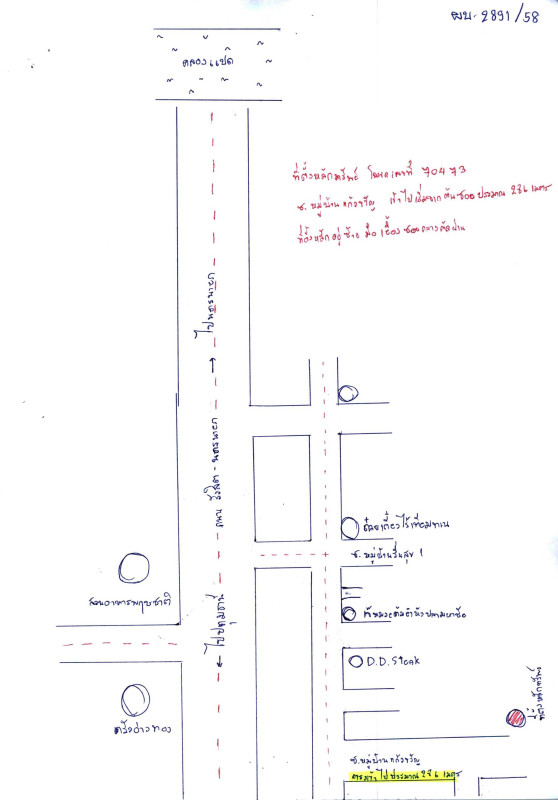 ผบ. 2891/58
คลองแปด
ที่ตั้งหลักทรัพย์ โฉนดเลขที่ 70473
ซ. หมู่บ้านแก้วขวัญ เข้าไปเริ่มจากต้นซอยประมาณ 276 เมตร
ที่ตั้งหลักอยู่ซ้ายมือ เยื้องซอยกลางตัดผ่าน
ไปนครนายก
ถนน รังสิต - นครนายก
ไปปทุมธานี
สวนอาหารพฤกษชาติ
ครัวอ่างทอง
ก๋วยเตี๋ยวไร้เทียมทาน
ซ. หมู่บ้านรื่นสุข 1
D.D. Steak
ที่ตั้งหลักทรัพย์
ซ. หมู่บ้านแก้วขวัญ
ตรงเข้าไปประมาณ 276 เมตร